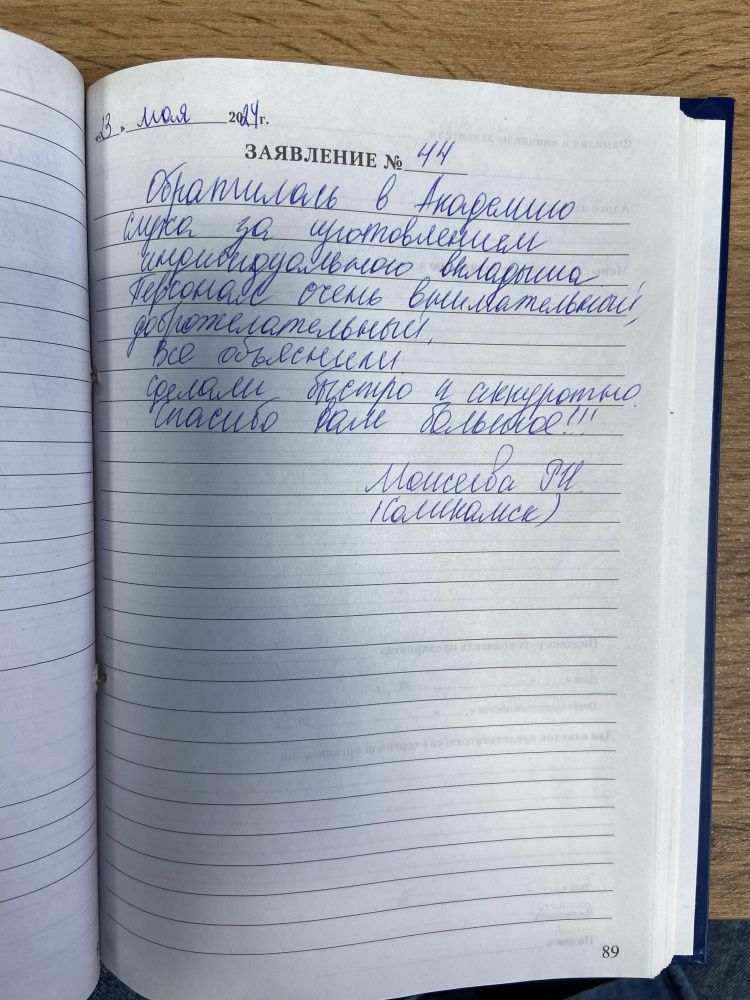 «23» мая 2024 г.
ЗАЯВЛЕНИЕ № 44
Обратилась в Академию
слуха за изготовлением
индивидуального вкладыша.
Персонал очень внимательный,
доброжелательный,
Все объяснили.
сделали быстро и аккуратно.
Спасибо вам большое!!!
Моисеева Р.И.
(Соликамск)
89